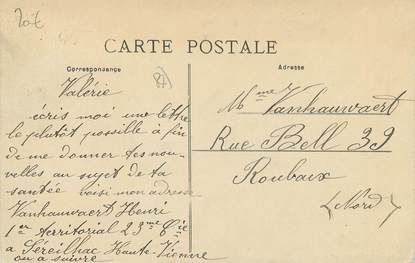 CARTE POSTALE
Correspondance
Valérie
écris moi une lettre
le plutôt possible à fin
de me donner tes nou-
velles au sujet de ta
santée voisi mon adresse
Vanhauwaert Henri
1er Territorial 23me Cie
a Séreilhac Haute-Vienne
ou a suivre
Adresse
Mme Vanhauwaert
Rue Bell 39
Roubaix
(Nord)